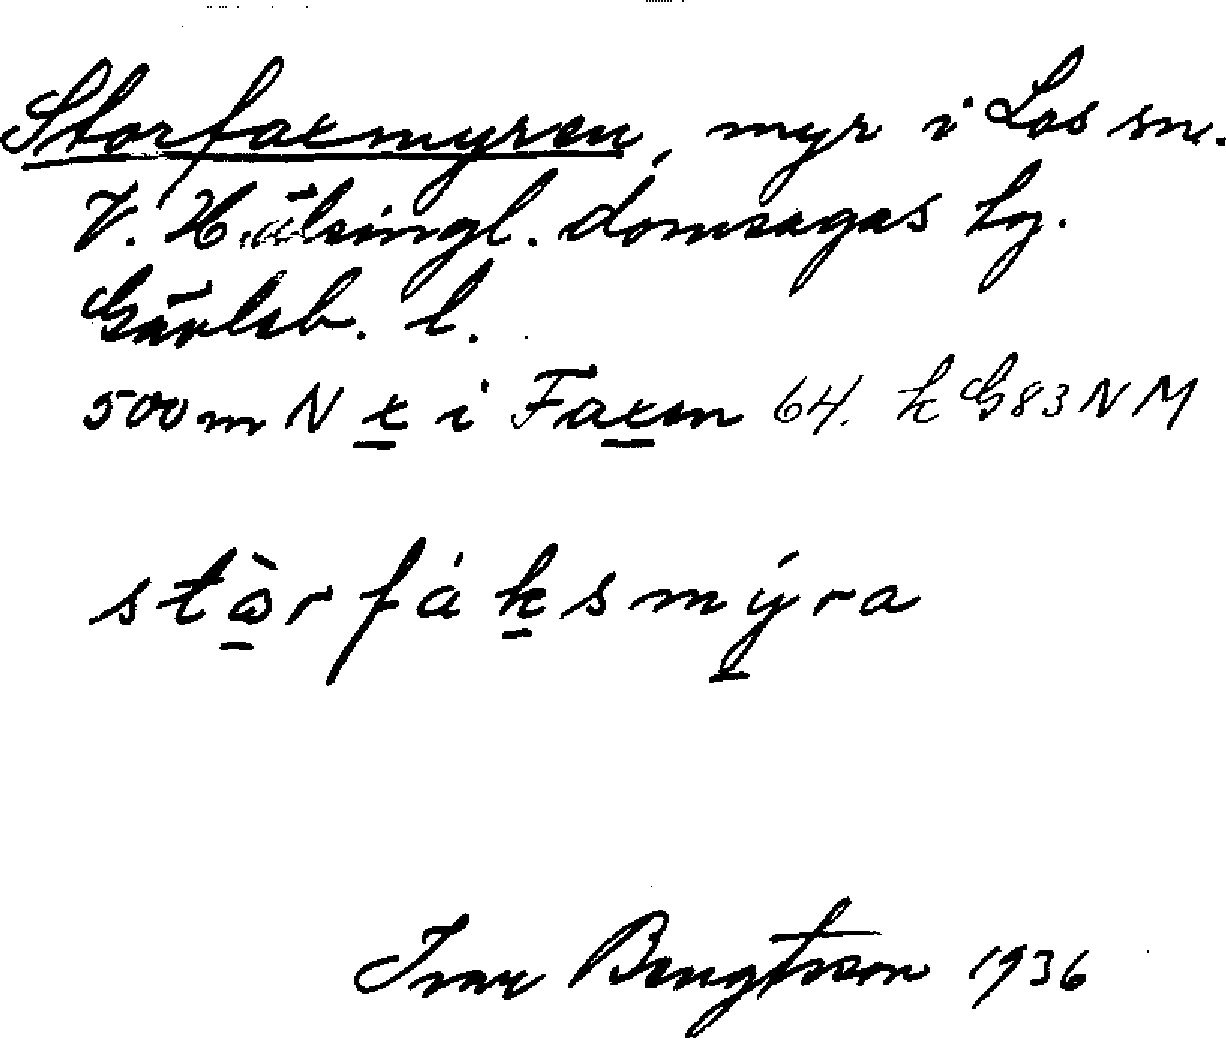 Storfaxmyren, myr i Los sn.
V. Hälsingl. domsagas tg.
Gävleb. l.
500 m N x i Faxen 64. k G83NM
stòrfáksmýra
Ivar Bengtsson 1936